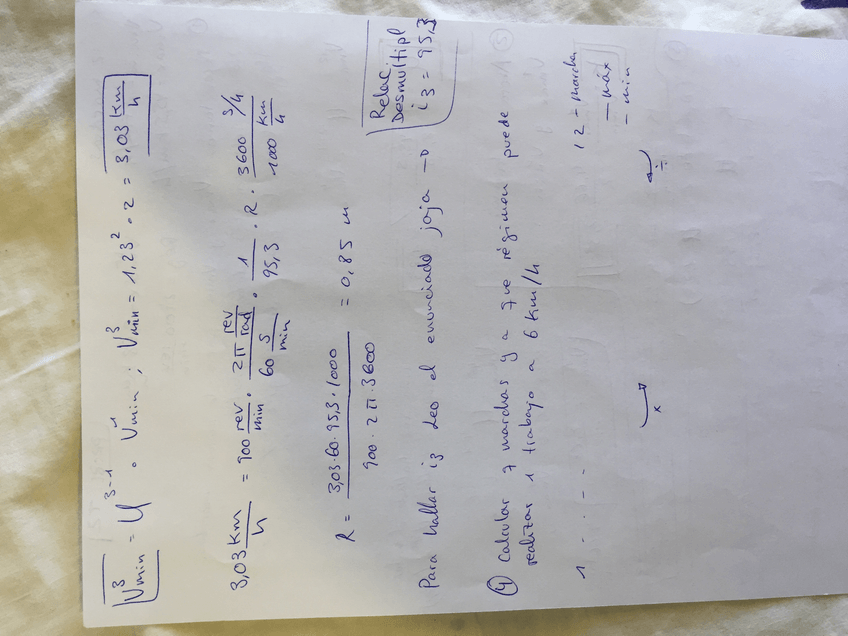 V³min = U³⁻¹ · V¹min ; V³min = 1,23² · 2 = 3,03 km/h
3,03 km/h = 900 rev/min · 2π rev/rad / 60 s/min · 1/95,3 · R · 3600 s/h / 1000 km/h
R = 3,03·60·95,3·1000 / 900 · 2π · 3600 = 0,85 m
Para hallar i3 leo el enunciado jaja →
Relac
Desmultipl
i3 = 95,3
④ Calcular 7 marchas y a que régimen puede
realizar 1 trabajo a 6 km/h
1 - - - - 12 - marcha
- máx
- min
x ÷